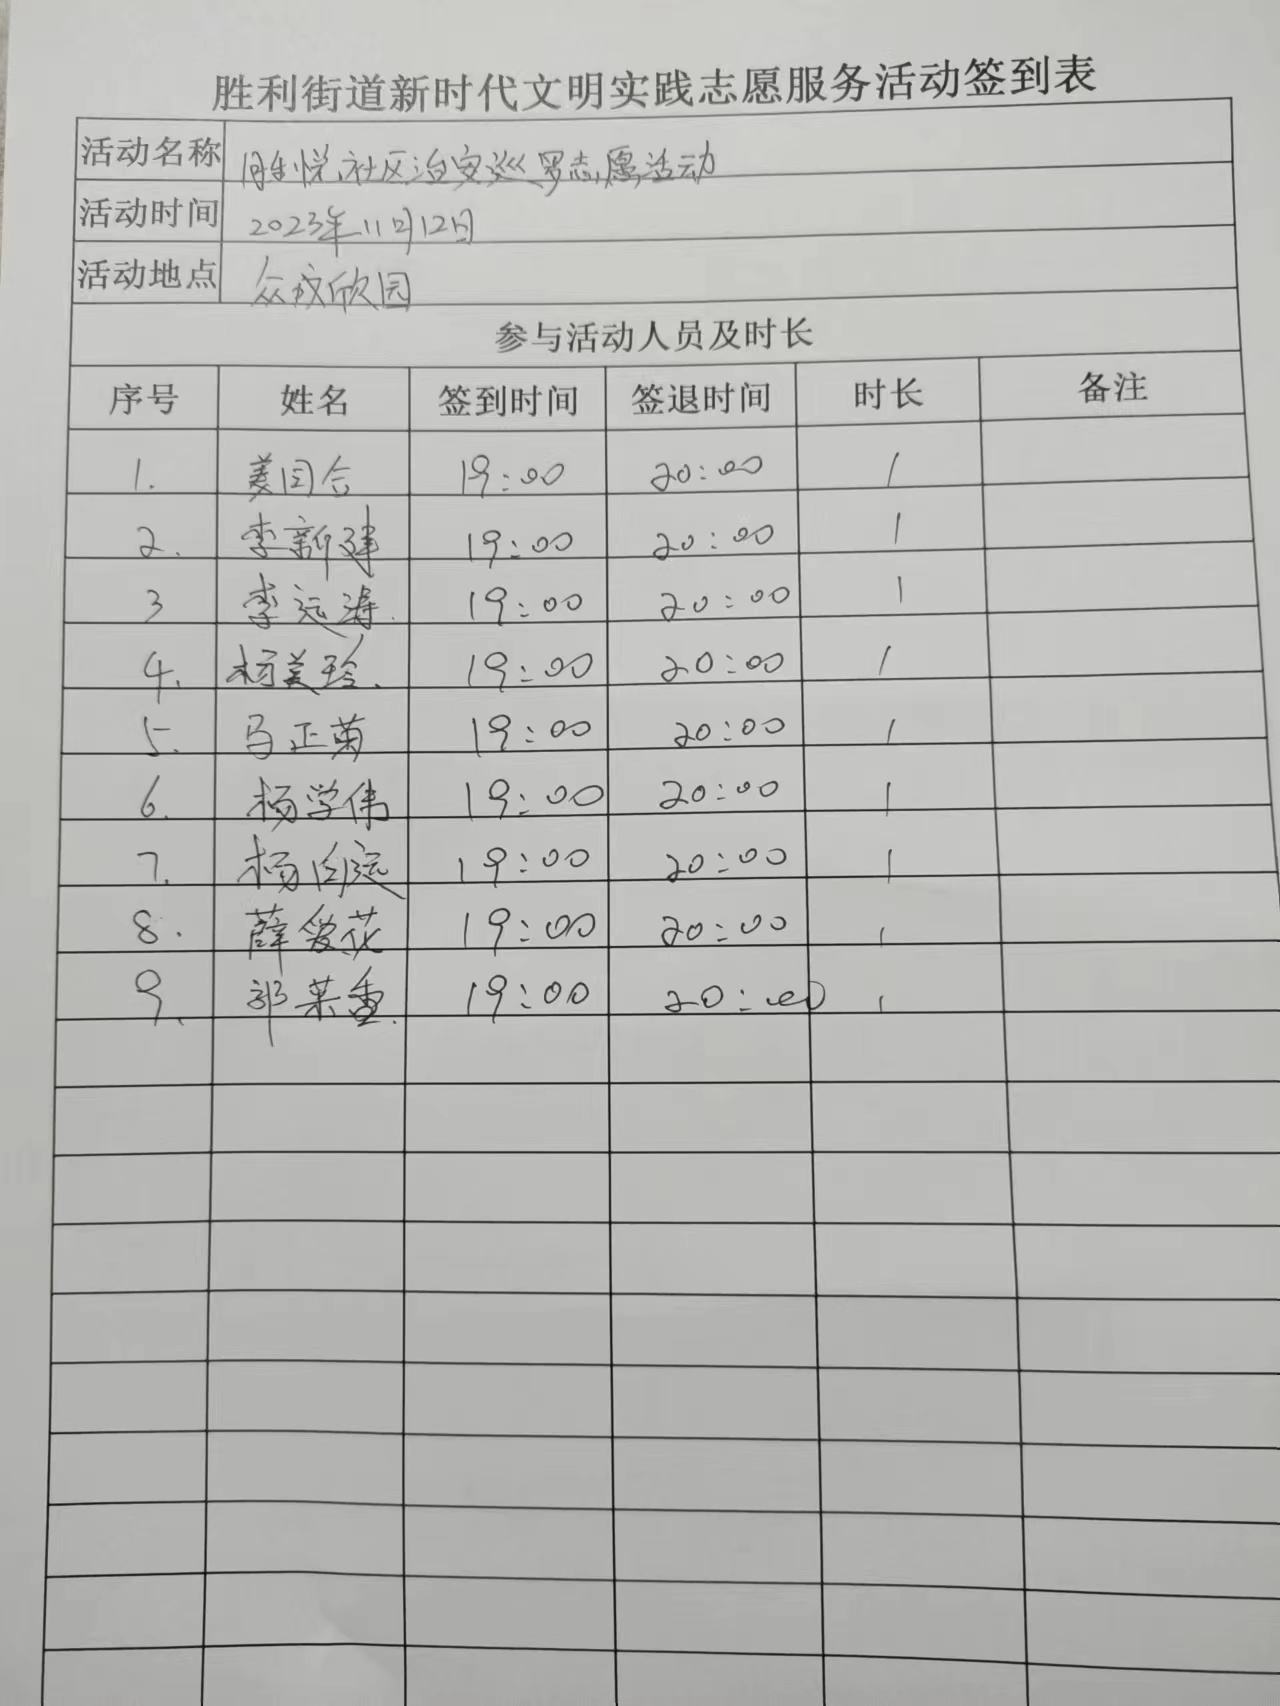 胜利街道新时代文明实践志愿服务活动签到表
活动名称 胜利悦社区治安巡罗志愿活动
活动时间 2023年11月12日
活动地点 众成欣园
参与活动人员及时长
序号 姓名 签到时间 签退时间 时长 备注
1. 19:00 20:00 1
2. 李新建 19:00 20:00 1
3 李远涛. 19:00 20:00 1
4. 杨美玲. 19:00 20:00 1
5. 马正菊 19:00 20:00 1
6. 杨学伟 19:00 20:00 1
7. 杨 19:00 20:00 1
8. 薛爱花 19:00 20:00 1
9. 郭荣香. 19:00 20:00 1